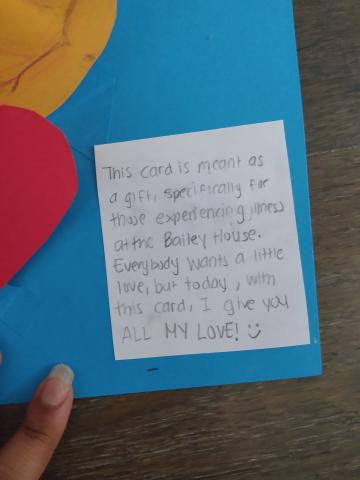 This card is meant as
a gift, specifically for
those experiencing illness
at the Bailey House.
Everybody wants a little
love, but today, with
this card, I give you
ALL MY LOVE! :)